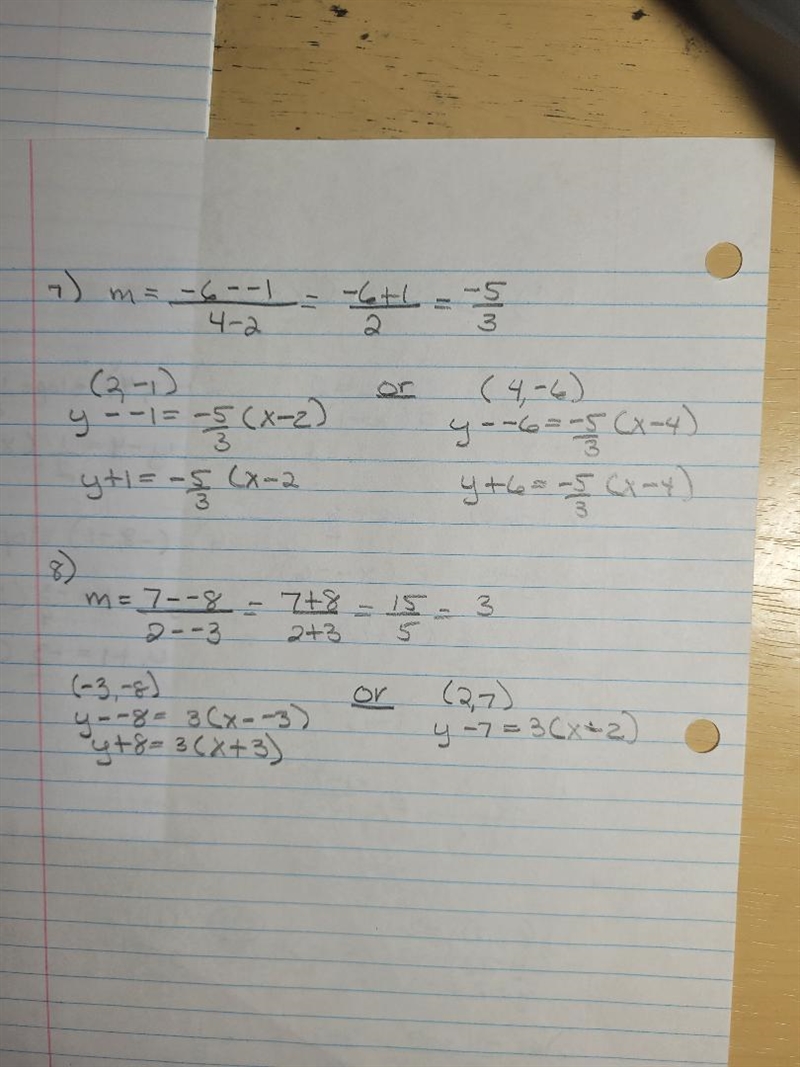 7) m = -6--1/4-2 = -6+1/2 = -5/3
(2,-1) or (4,-6)
y--1 = -5/3 (x-2) y--6 = -5/3 (x-4)
y+1 = -5/3 (x-2 y+6 = -5/3 (x-4)
8)
m = 7--8/2--3 = 7+8/2+3 = 15/5 = 3
(-3,-8) or (2,7)
y--8 = 3(x--3) y-7 = 3(x-2)
y+8 = 3(x+3)